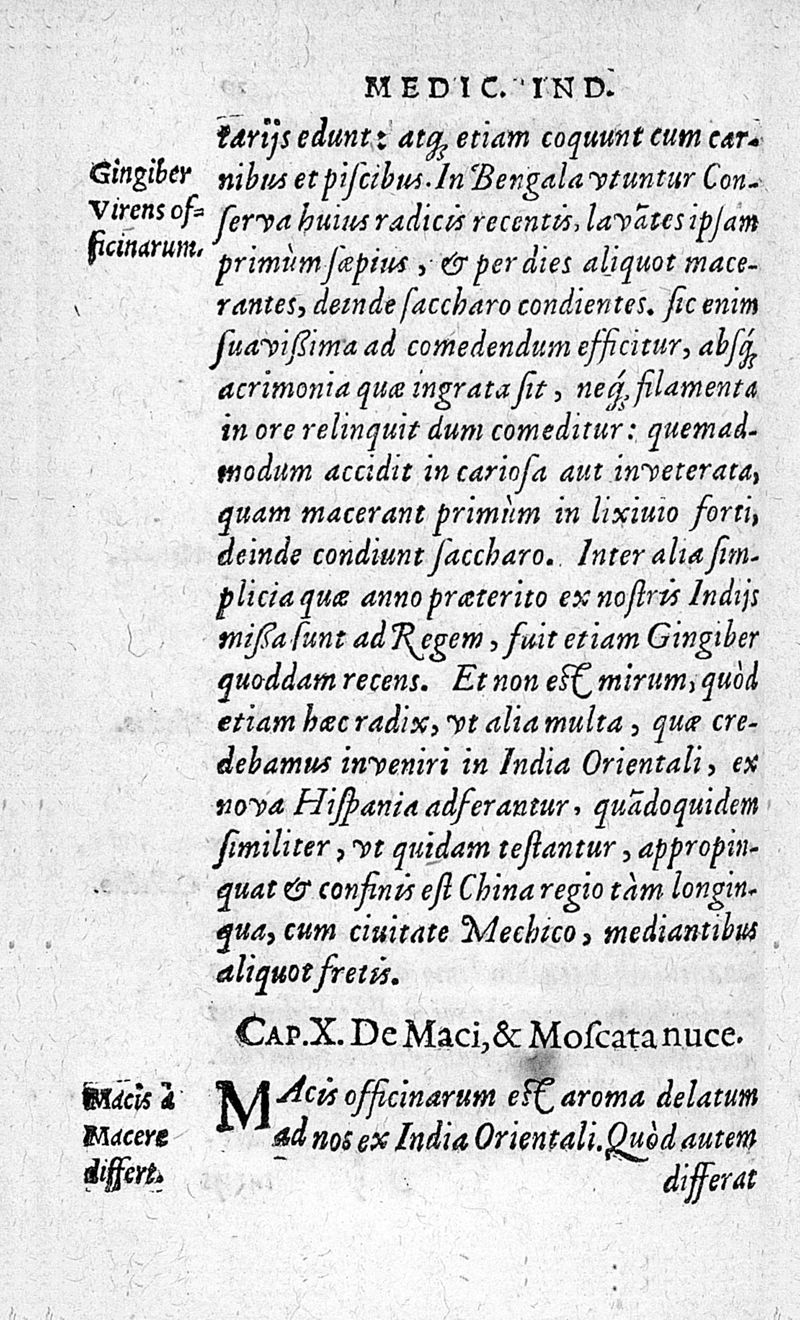 MEDIC. IND.
tarijs edunt: atq́; etiam coquunt cum car-
Gingiber
Virens of=
ficinarum.
nibus et piſcibus. In Bengala vtuntur Con-
ſerva huius radicis recentis, lavãtes ipſam
primùm ſæpius, & per dies aliquot mace-
rantes, deinde ſaccharo condientes. ſic enim
ſuavißima ad comedendum efficitur, absq́;
acrimonia quæ ingrata ſit, neq́; filamenta
in ore relinquit dum comeditur: quemad-
modum accidit in carioſa aut inveterata,
quam macerant primùm in lixiuio forti,
deinde condiunt ſaccharo. Inter alia ſim-
plicia quæ anno præterito ex noſtris Indijs
mißa ſunt ad Regem, fuit etiam Gingiber
quoddam recens. Et non eſt mirum, quòd
etiam hæc radix, vt alia multa, quæ cre-
debamus inveniri in India Orientali, ex
nova Hiſpania adferantur, quãdoquidem
ſimiliter, vt quidam teſtantur, appropin-
quat & confinis eſt China regio tàm longin-
qua, cum ciuitate Mechico, mediantibus
aliquot fretis.
CAP. X. De Maci, & Moſcata nuce.
Macis à
Macere
differt.
MAcis officinarum eſt aroma delatum
ad nos ex India Orientali. Quòd autem
differat